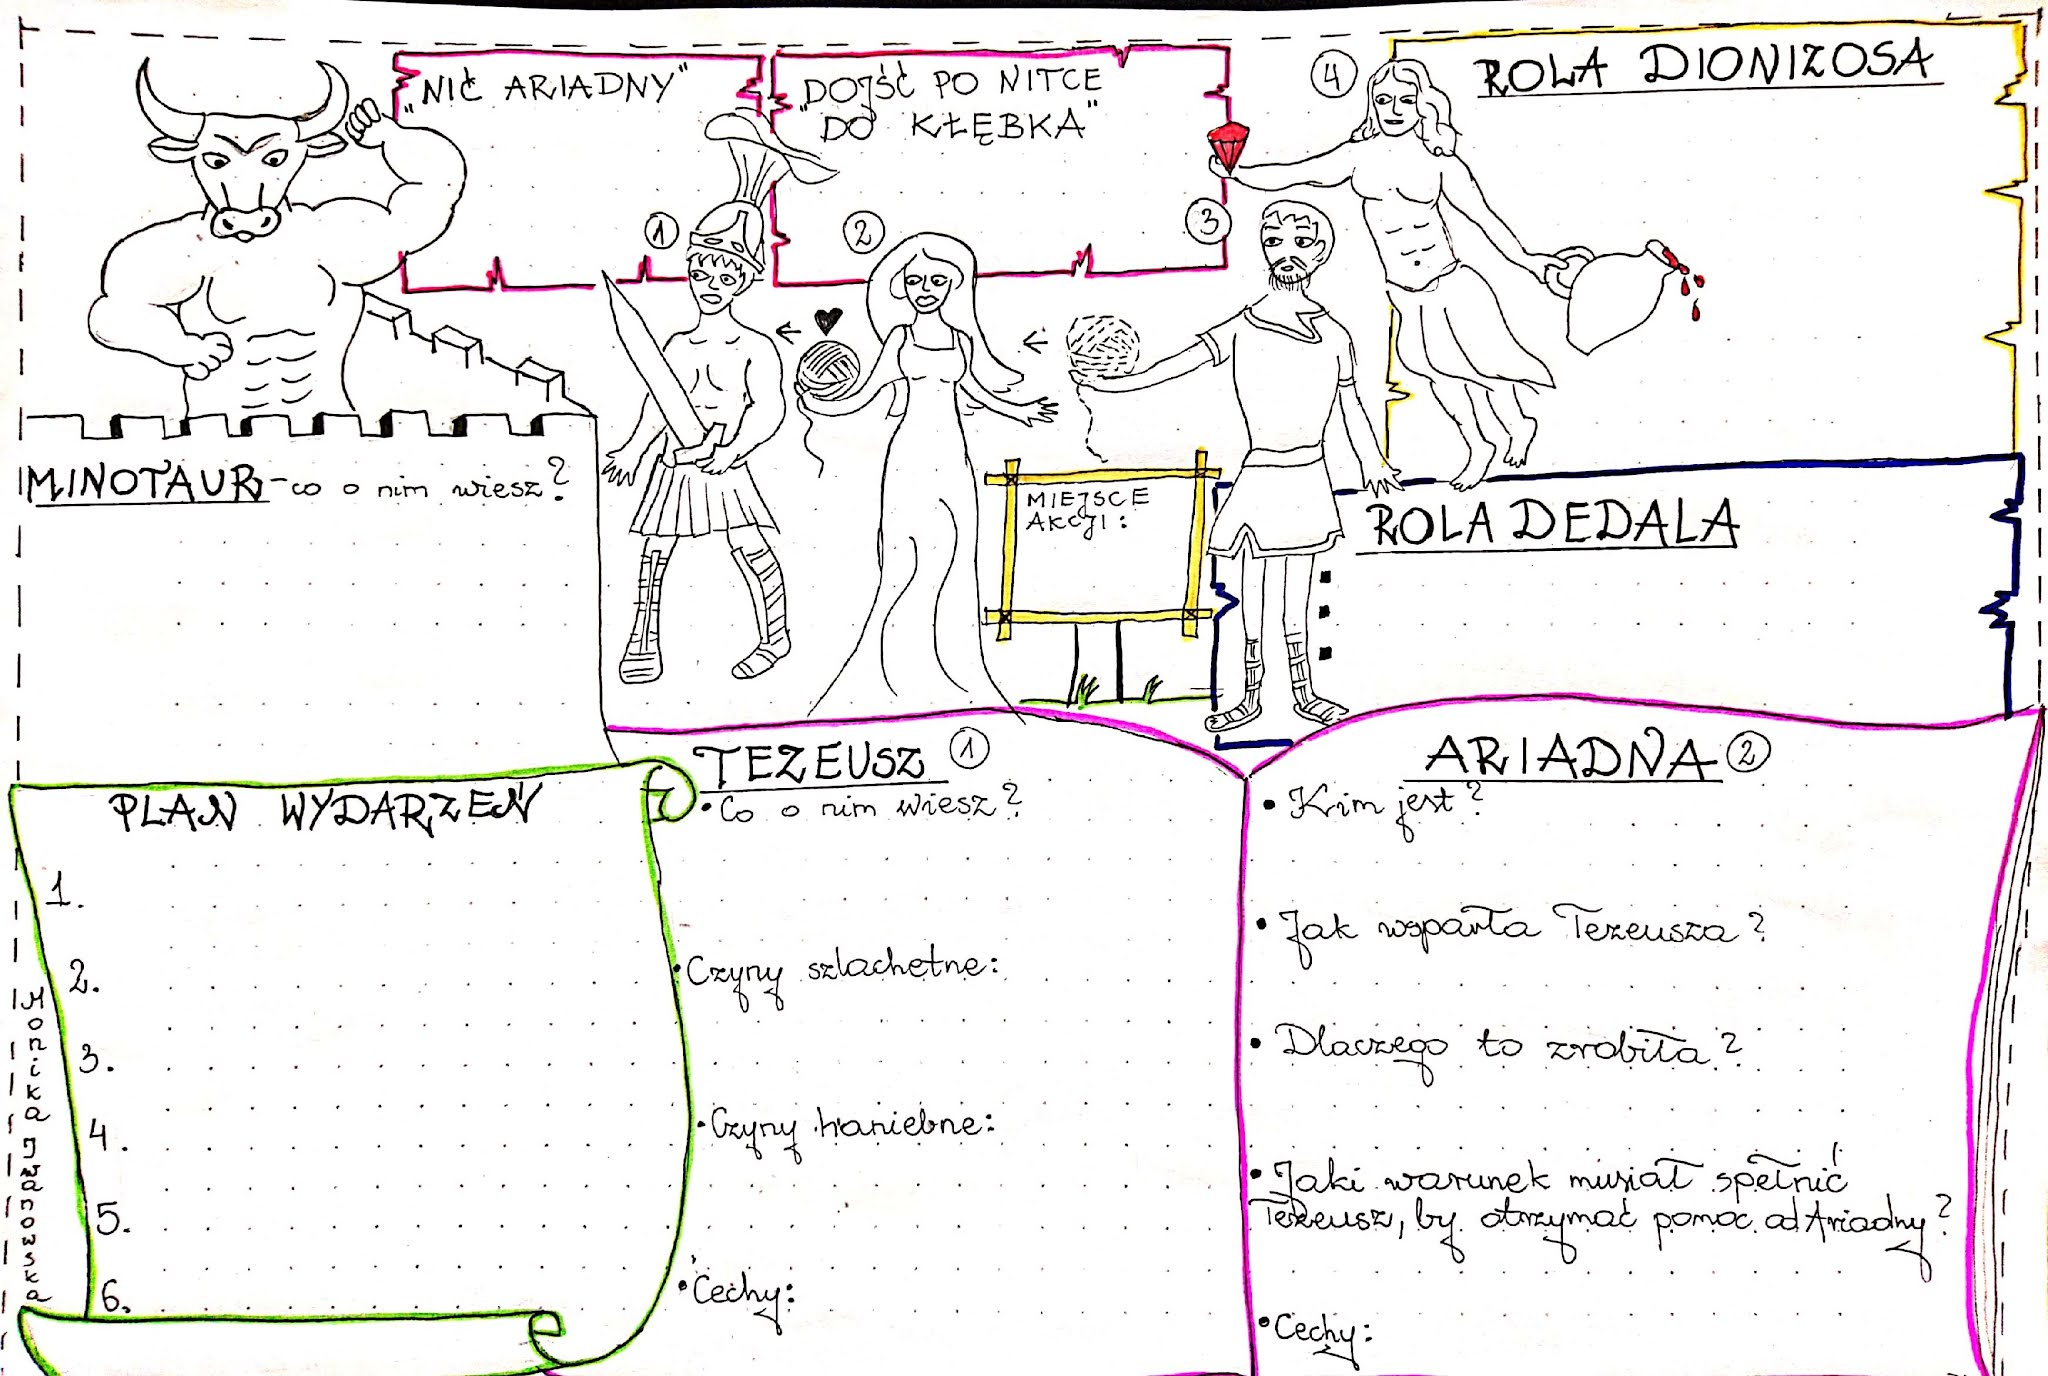 „NIĆ ARIADNY"
„DOJŚĆ PO NITCE
DO KŁĘBKA"
4
ROLA DIONIZOSA
1
2
3
MINOTAUR - co o nim wiesz?
MIEJSCE
AKCJI:
ROLA DEDALA
PLAN WYDARZEŃ
1.
2.
3.
4.
5.
6.
Monika Iwanowska
TEZEUSZ 1
• Co o nim wiesz?
• Czyny szlachetne:
• Czyny haniebne:
• Cechy:
ARIADNA 2
• Kim jest?
• Jak wsparła Tezeusza?
• Dlaczego to zrobiła?
• Jaki warunek musiał spełnić
Tezeusz, by otrzymać pomoc od Ariadny?
• Cechy: